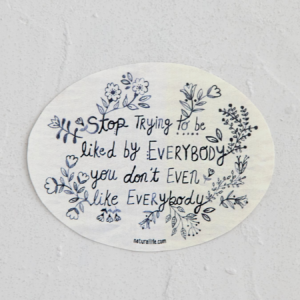 Stop Trying to be
liked by EVERYBODY
you don't EVEN
like EVERybody
naturallife.com